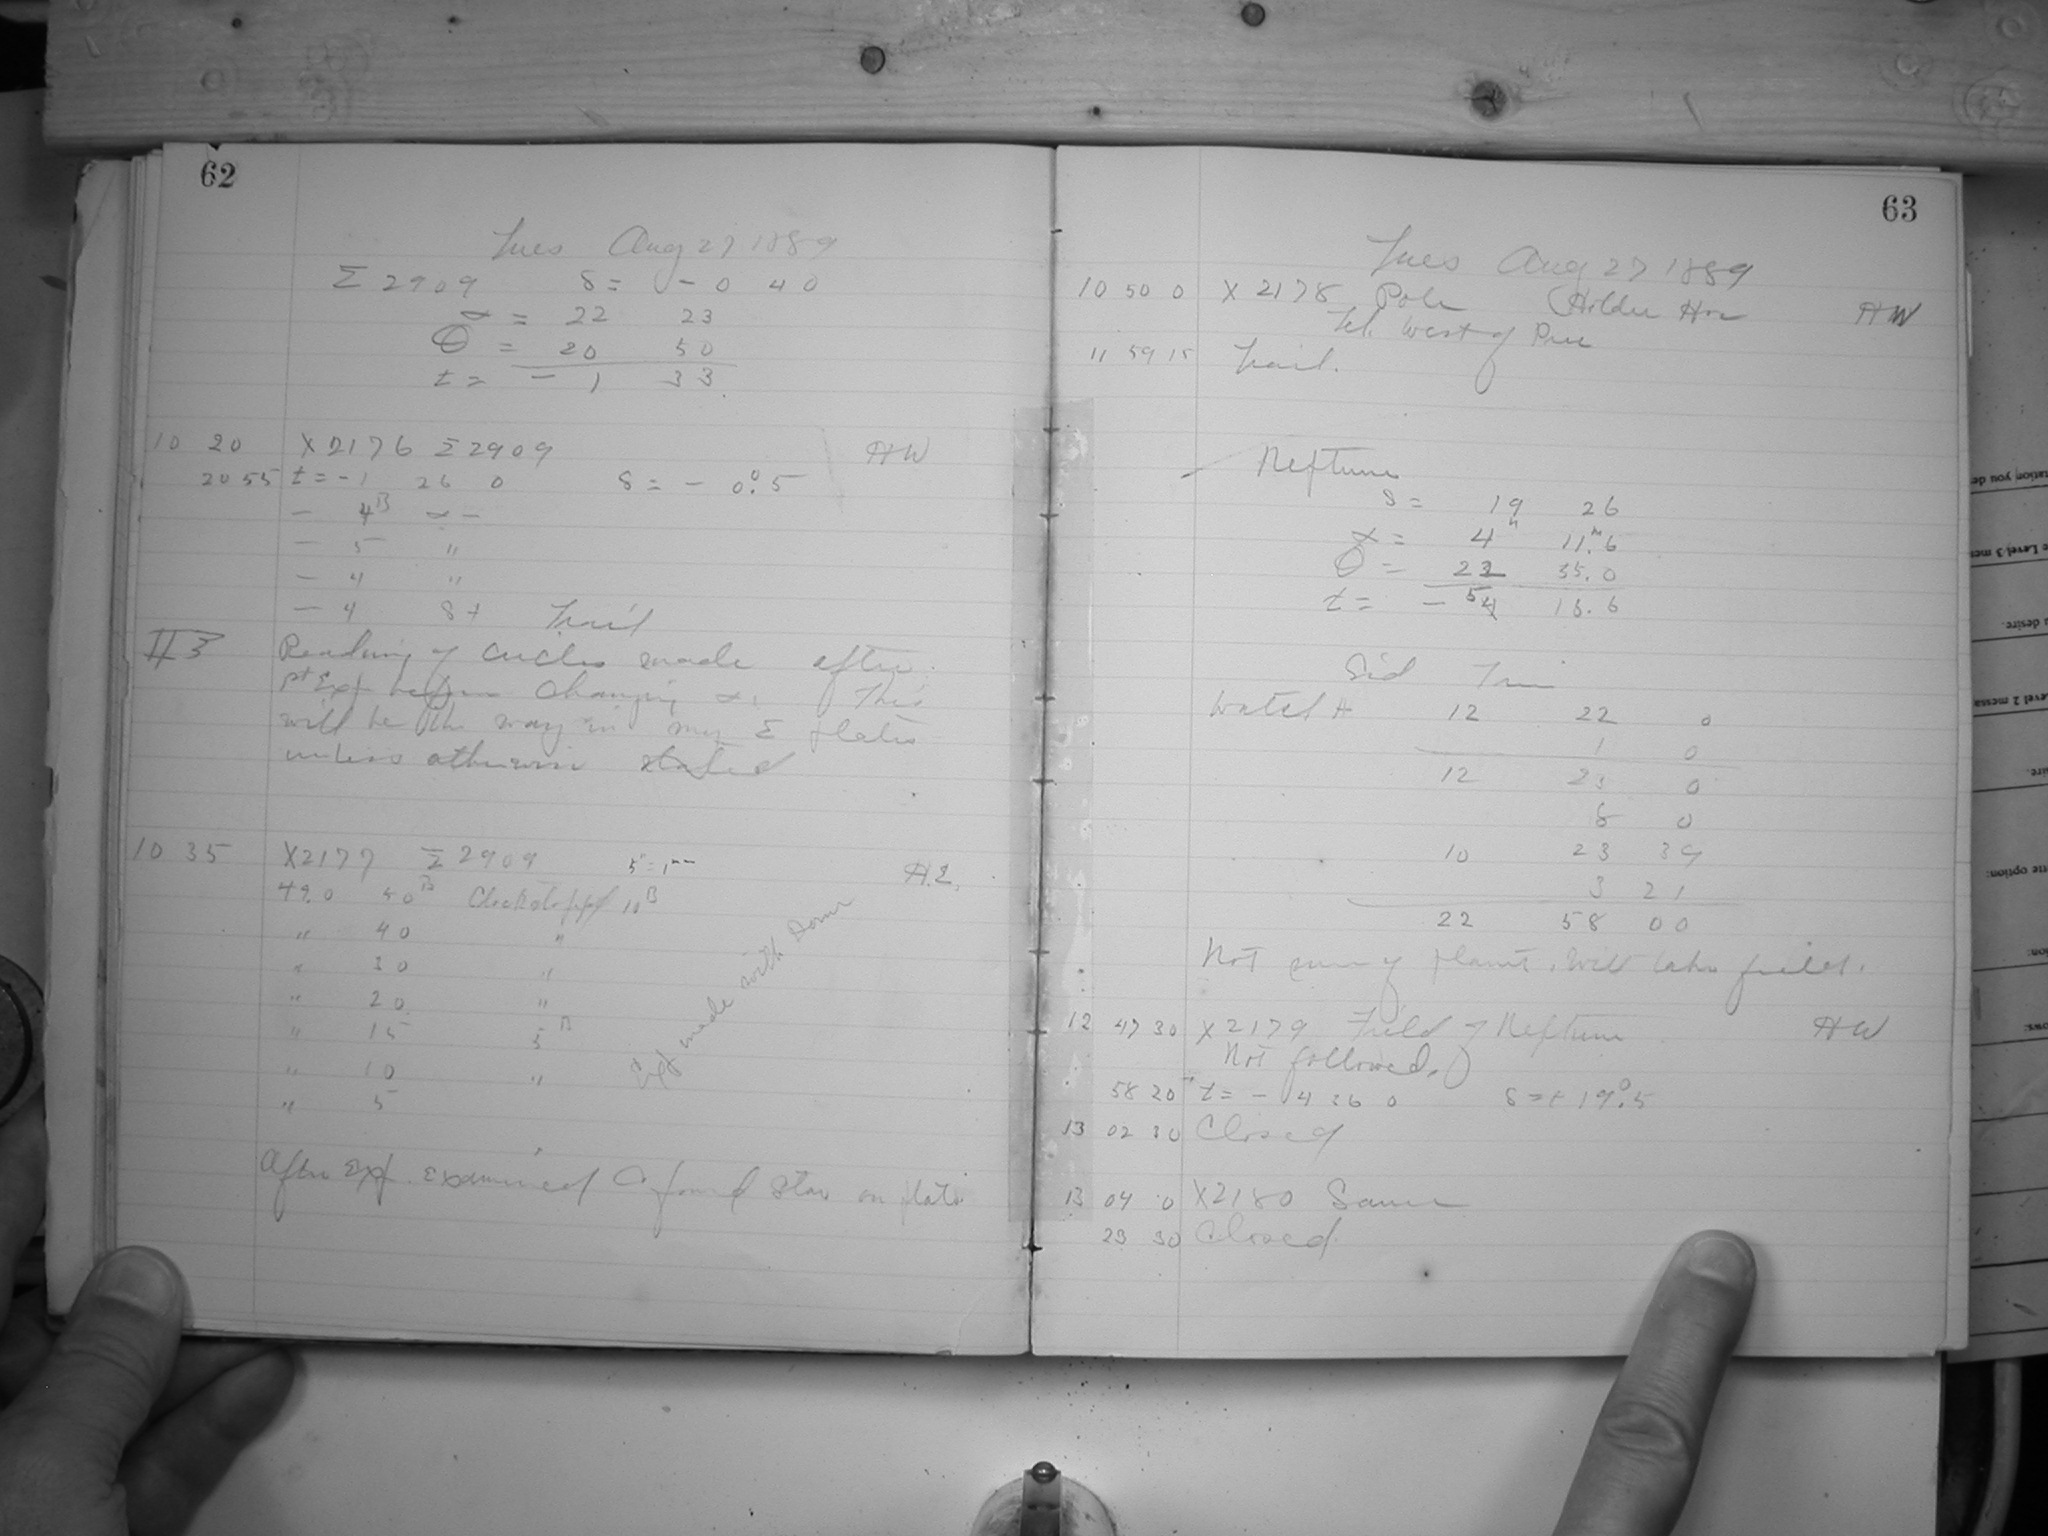 62
Tues Aug 27 1889
Σ 2909 δ = - 0 40
α = 22 23
θ = 20 50
t = - 1 33
10 20 X2176 Σ 2909 HW
20 55 t = - 1 26 0 δ = - 0°.5
- 4B α -
- 5 "
- 4 "
- 4 δ + Trail
H3 Reading of circles made after
1st Exp before changing α. This
will be the way in my Σ plates
unless otherwise stated
10 35 X2177 Σ 2909 5" = 1mm H.E.
49.0 50B Clock stopped 10B
" 40 "
" 30 "
" 20 "
" 15 5B
" 10 "
" 5
Exp made with Dome
After Exp. examined & found star on plate
63
Tues Aug 27 1889
10 50 0 X 2178 Pole Holder Hor HW
Tel. West of Pier
11 59 15 Trail.
Neptune
δ = 19 26
α = 4h 11m.6
θ = 22 35.0
t = - 5 4 18.6
Sid Time
Watch H 12 22 0
1 0
12 23 0
8 0
10 23 39
3 21
22 58 00
Not sure of planet. Will take field.
12 47 30 X2179 Field of Neptune HW
Not followed.
58 20 t = - 4 36 0 δ = + 19°.5
13 02 30 Closed
13 04 0 X2180 Same
23 30 Closed.